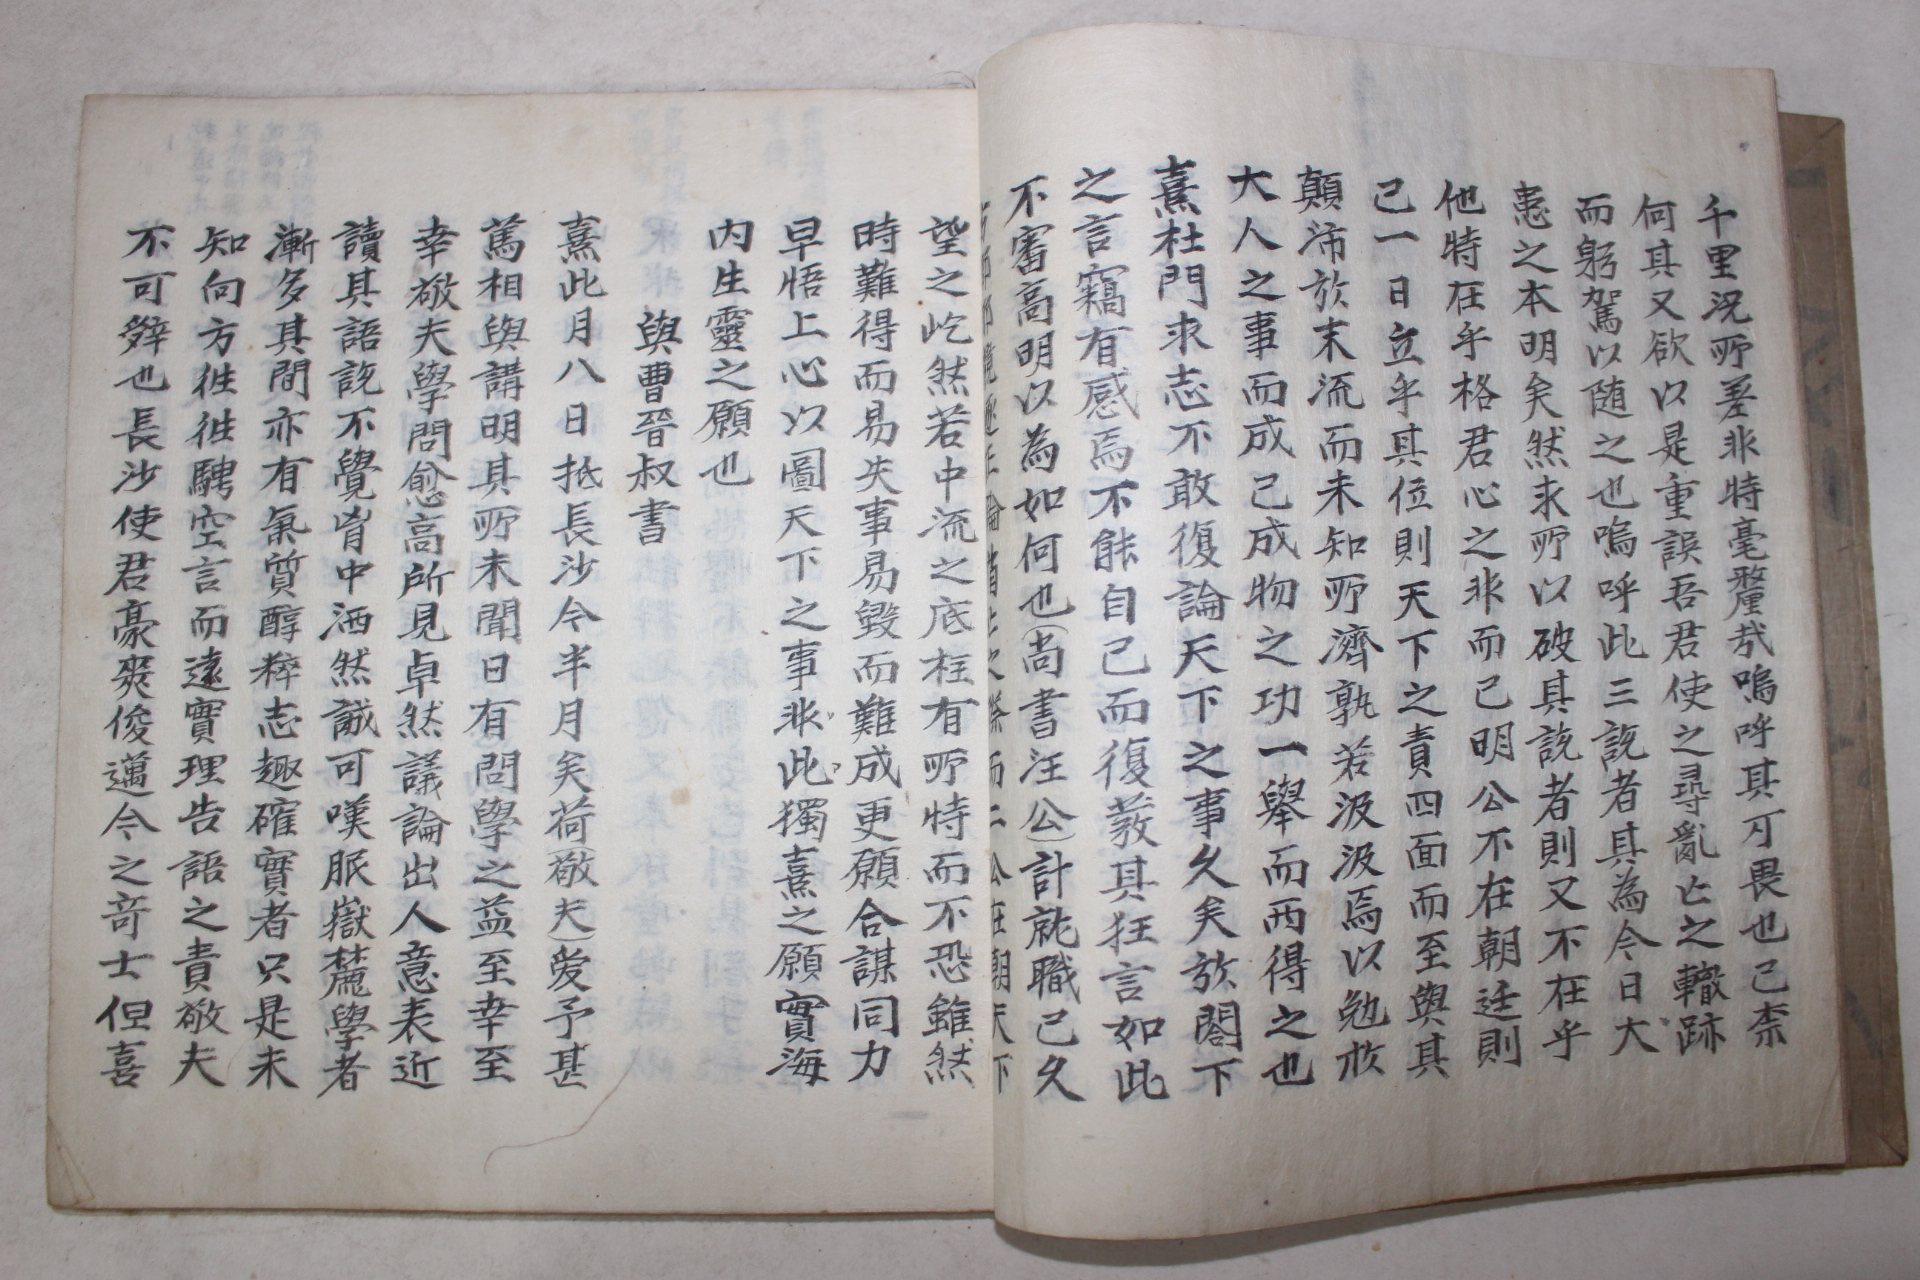 千里況所差非特毫釐哉嗚呼其可畏也已柰
何其又欲以是重誤吾君使之尋亂亡之轍跡
而躬駕以随之也嗚呼此三説者其為今日大
患之本明矣然求所以破其説者則又不在乎
他特在乎格君心之非而已明公不在朝廷則
已一日立乎其位則天下之責四面而至與其
顛沛於末流而未知所濟孰若汲汲焉以勉於
大人之事而成己成物之功一舉而両得之也
熹杜門求志不敢復論天下之事久矣於閤下
之言竊有感焉不能自已而復効其狂言如此
不審高明以為如何也(尚書汪公)計就職已久
望之屹然若中流之底柱有所恃而不恐雖然
時難得而易失事易毀而難成更願合謀同力
早悟上心以圖天下之事非此獨熹之願實海
内生靈之願也
與曹晉叔書
熹此月八日抵長沙今半月矣荷(敬夫)愛予甚
篤相與講明其所未聞日有問學之益至幸至
幸敬夫學問愈高所見卓然議論出人意表近
讀其語説不覺胷中洒然誠可嘆服嶽麓學者
漸多其間亦有氣質醇粹志趣確實者只是未
知向方徃徃騁空言而遠實理告語之責敬夫
不可辤也長沙使君豪爽俊邁今之竒士但喜